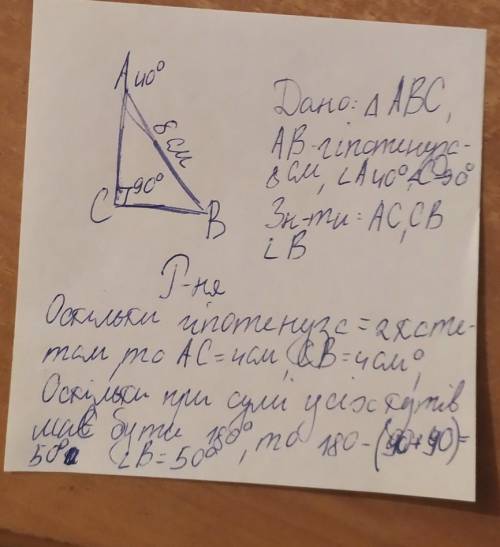 A 40°
8 см
C 90°
B
Дано: △ ABC,
AB-гіпотенуза-
8 см, ∠A 40° ∠C 90°
Зн-ти: AC, CB
∠B
Р-ня
Оскільки гіпотенуза = 2 кате-
там, то AC = 4 см, CB = 4 см,
Оскільки при сумі усіх кутів
має бути 180°, то 180 - (90+90) =
50° ∠B = 50°